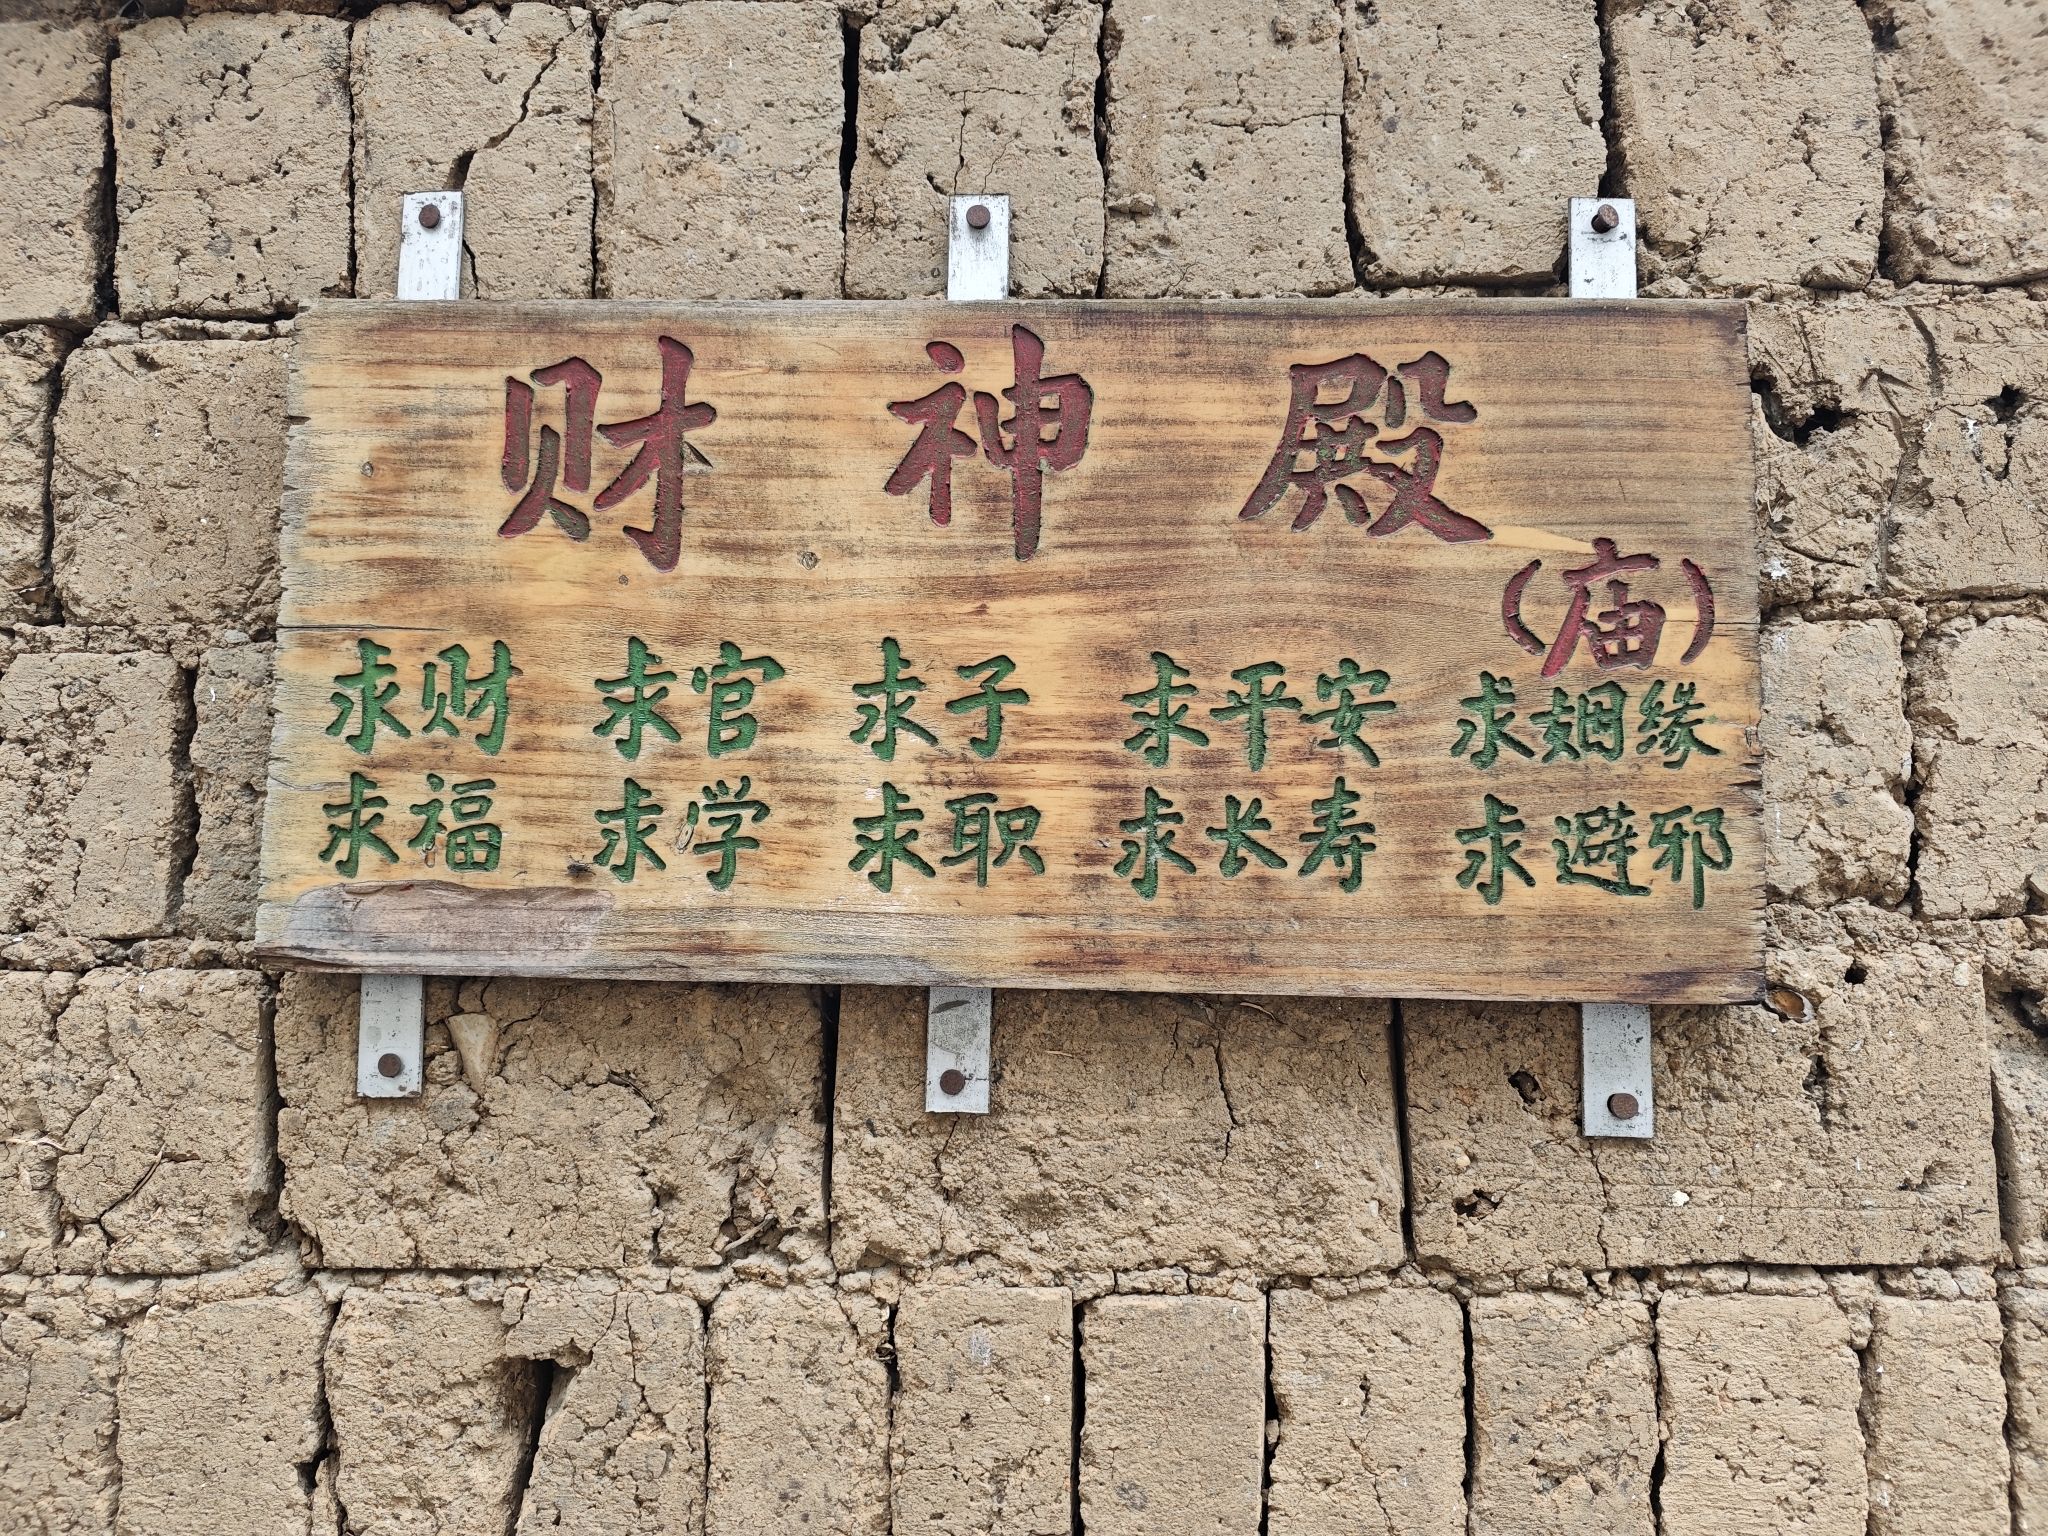 财神殿
(庙)
求财 求官 求子 求平安 求姻缘
求福 求学 求职 求长寿 求避邪